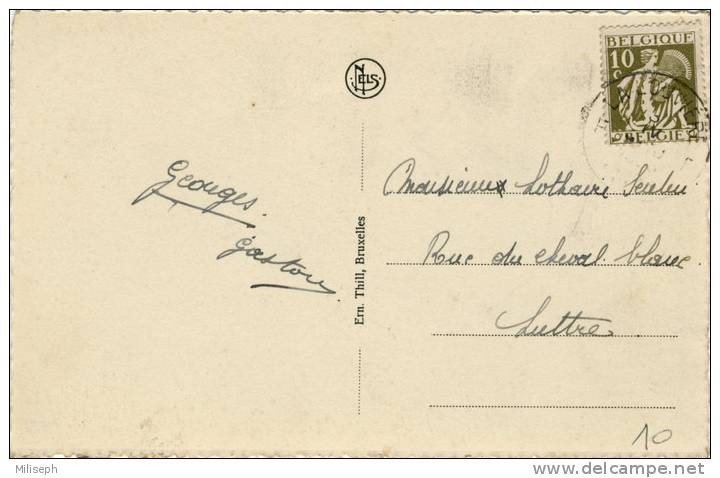 NELS
BELGIQUE
10
BELGIE
Monsieur Lothaire
Rue du cheval blanc
Luttre
Georges
Gaston
Ern. Thill, Bruxelles
10
Miliseph
delcampe.net